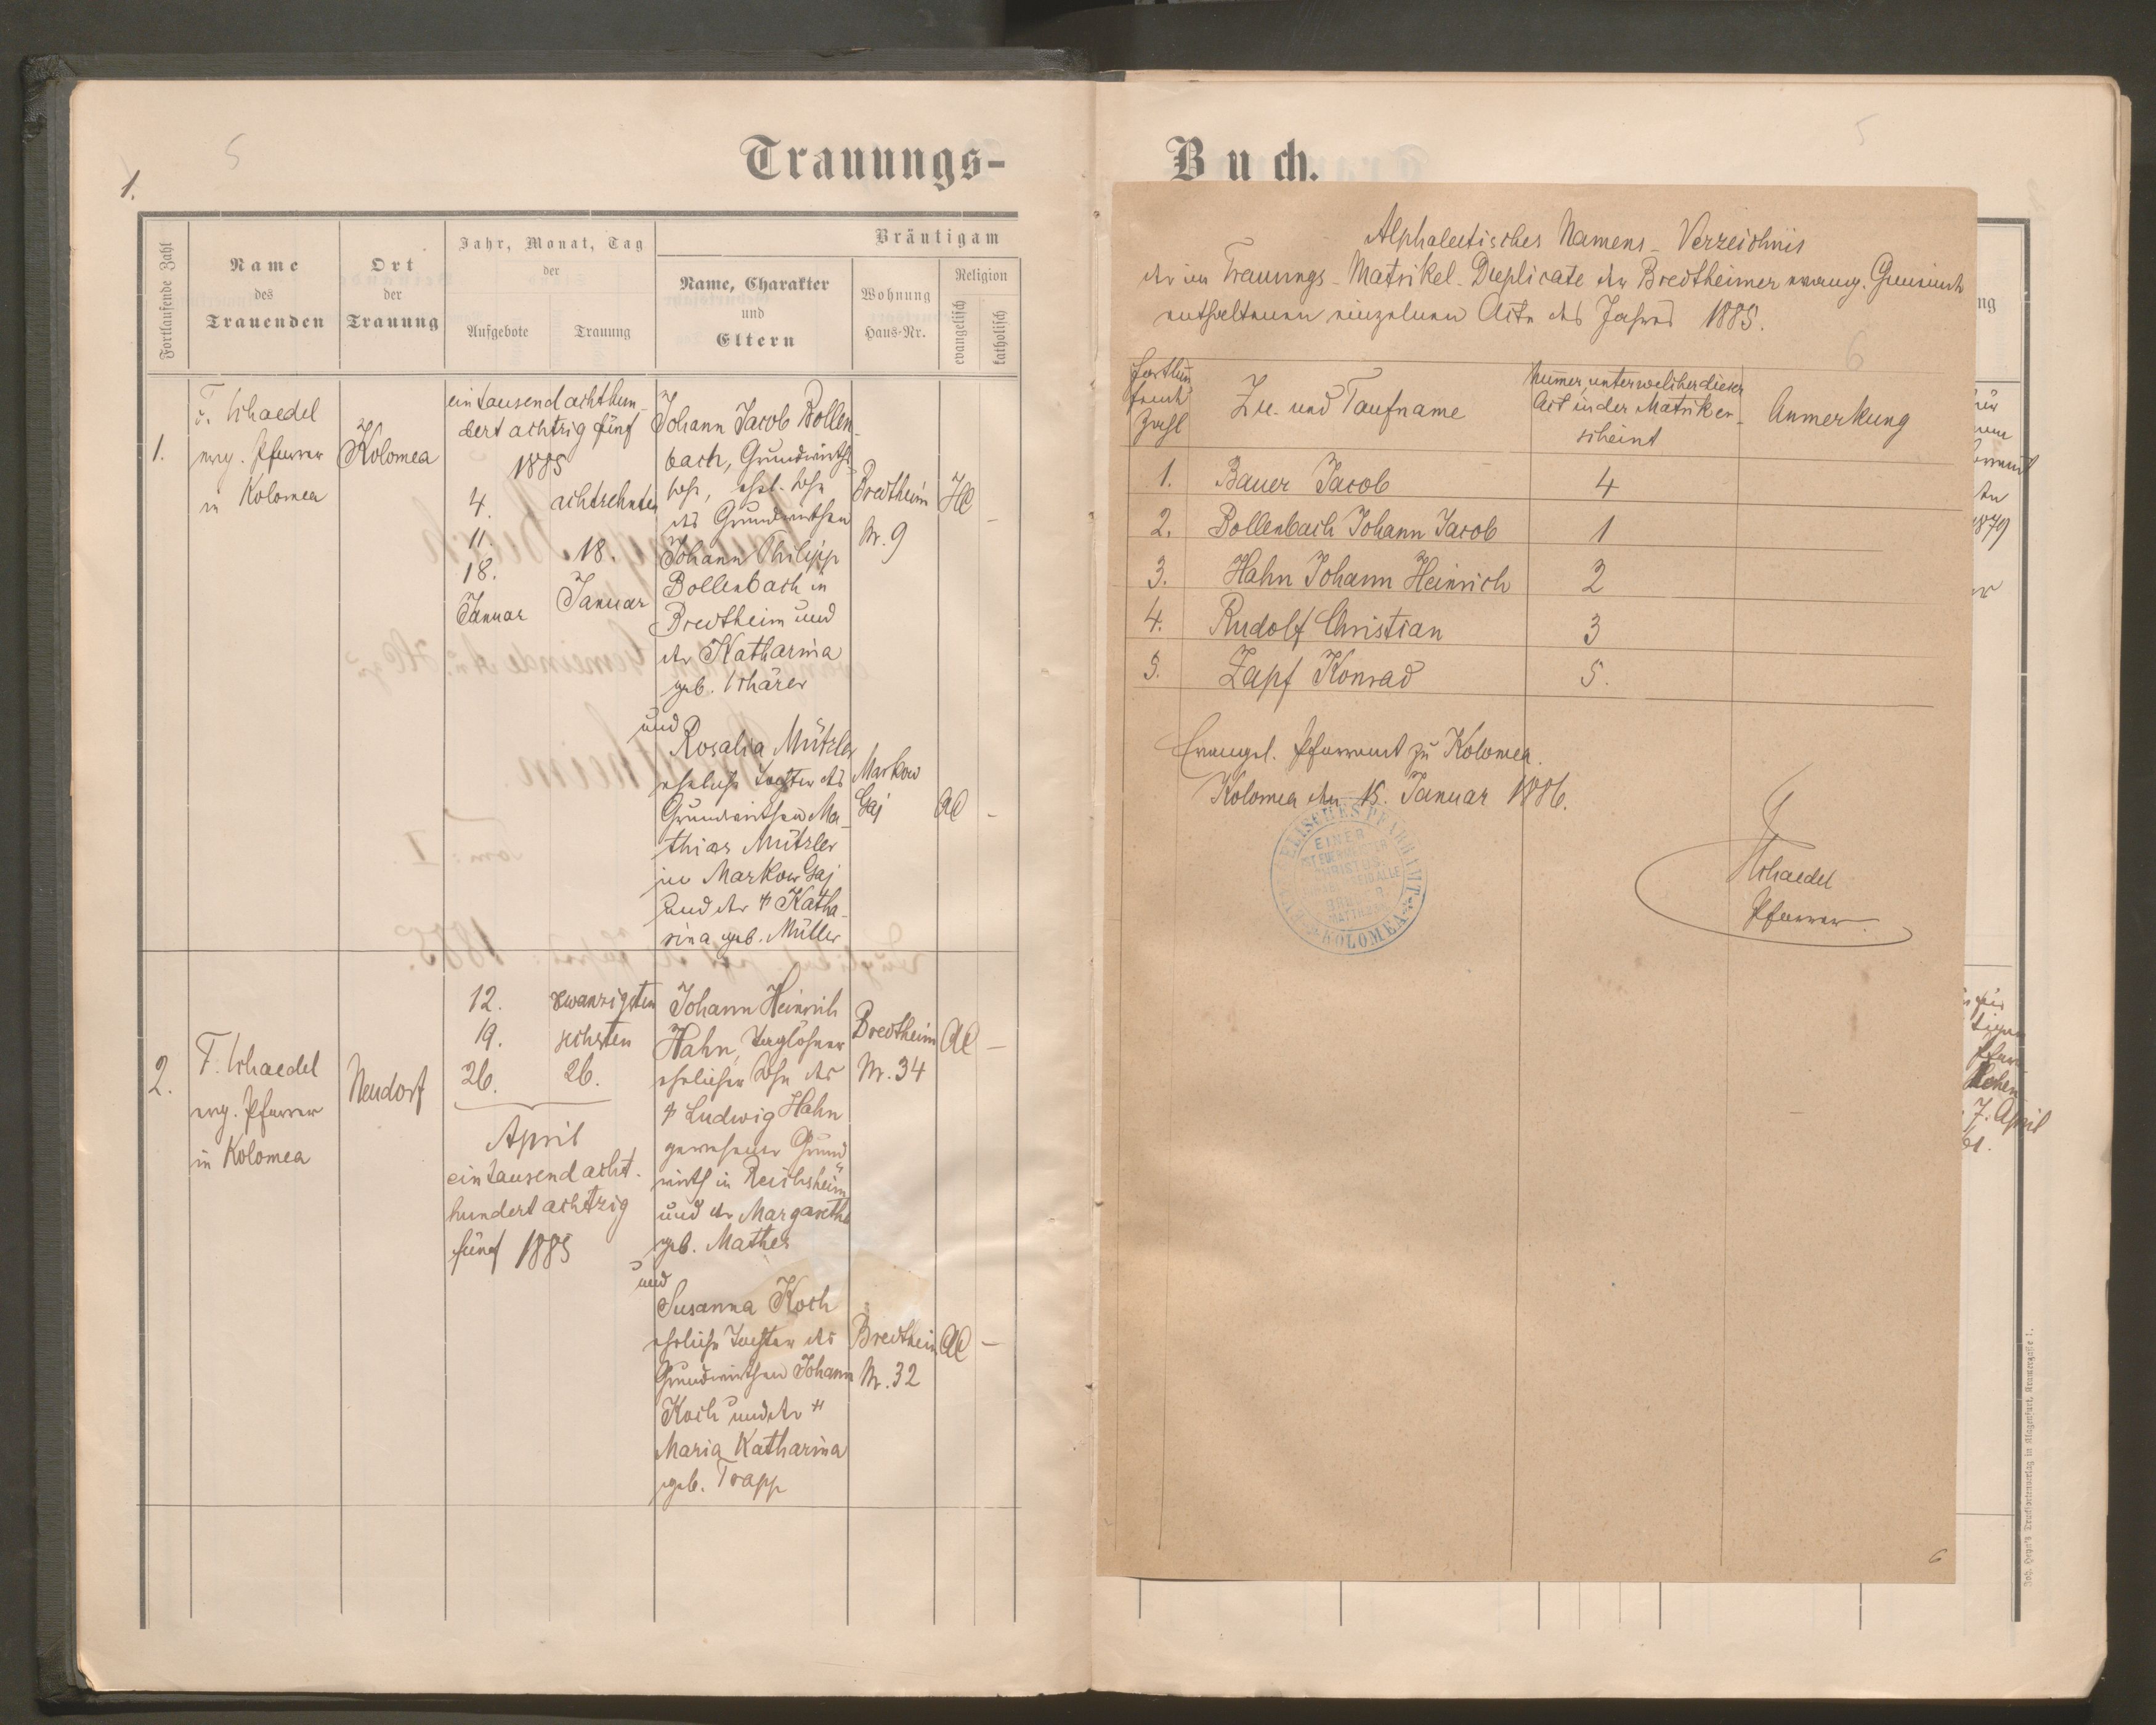 5
1.
Trauungs-
Fortlaufende Zahl
Name
des
Trauenden
Ort
der
Trauung
Jahr, Monat, Tag
der
Aufgebote
Trauung
Bräutigam
Name, Charakter
und
Eltern
Wohnung
Haus-Nr.
Religion
evangelisch
katholisch
1.
F. Schaedel
evg. Pfarrer
in Kolomea
Kolomea
ein tausend achthun-
dert achtzig fünf
1885
4.
11.
18.
Januar
achtzehnten
18.
Januar
Johann Jacob Bollen-
bach, Grundwirths-
sohn, ehel. Sohn
des Grundwirthen
Johann Philipp
Bollenbach in
Bredtheim und
der Katharina
geb. Schärer
Bredtheim
Nr. 9
HC
-
und
Rosalia Mützler
eheliche Tochter des
Grundwirthen Ma-
thias Mützler
in Markow Gaj
und der † Katha-
rina geb. Müller
Markow
Gaj
AC
-
2.
F. Schaedel
evg. Pfarrer
in Kolomea
Neudorf
12.
19.
26.
zwanzigsten
sechsten
26.
April
ein tausend acht-
hundert achtzig
fünf 1885
Johann Heinrich
Hahn, Taglöhner
ehelicher Sohn des
† Ludwig Hahn
gewesener Grund
wirth in Reichsheim
und der Margaretha
geb. Mathes
Bredtheim
Nr. 34
AC
-
und
Susanna Koch
eheliche Tochter des
Grundwirthen Johann
Koch und der †
Maria Katharina
geb. Trapp
Bredtheim
Nr. 32
AC
-
5
Buch.
Alphabetisches Namens-Verzeichnis
der im Trauungs-Matrikel-Duplicate der Bredtheimer evang. Gemeinde
enthaltenen einzelnen Acte des Jahres 1885.
6
Fortlau
fende
Zahl
Zu- und Taufname
Numer, unter welcher dieser
Act in der Matrik er-
scheint
Anmerkung
1. Bauer Jacob 4
2. Bollenbach Johann Jacob 1
3. Hahn Johann Heinrich 2
4. Rudolf Christian 3
5. Zapf Konrad 5.
Evangel. Pfarramt zu Kolomea.
Kolomea den 15. Januar 1886.
EINER
IST EUER MEISTER
CHRISTUS
KOLOMEA
FSchaedel
Pfarrer
6
ng
1879
7. April
Joh. Heyn's Drucksortenverlag in Klagenfurt, Kramergasse 1.